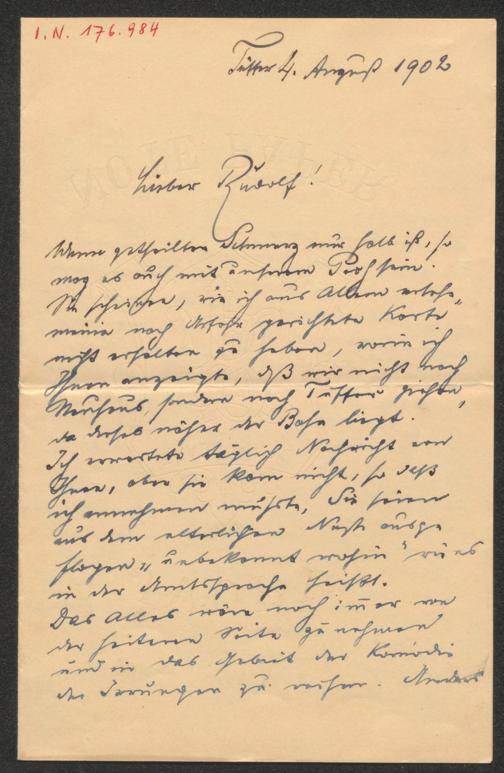 I.N. 176.984
Tüffer 4. August 1902
Lieber Rudolf!
Wenn getheilter Schmerz nur halb ist, so
mag es auch mit unserem Pech sein.
Sie scheinen, wie ich aus Allem ersehe,
meine nach gerichtete Karte
nicht erhalten zu haben, worin ich
Ihnen anzeigte, daß wir nicht nach
Neuhaus, sondern nach Tüffer gehen,
da dieses näher der Bahn liegt.
Ich erwartete täglich Nachricht von
Ihnen, aber sie kam nicht, so daß
ich annehmen mußte, Sie seien
aus dem elterlichen Neste ausge
flogen „unbekannt wohin" wie es
in der Amtssprache heißt.
Das Alles wäre noch immer von
der heiteren Seite zu nehmen
und in das Gebiet der Komödie
der Irrungen zu reihen. Anders